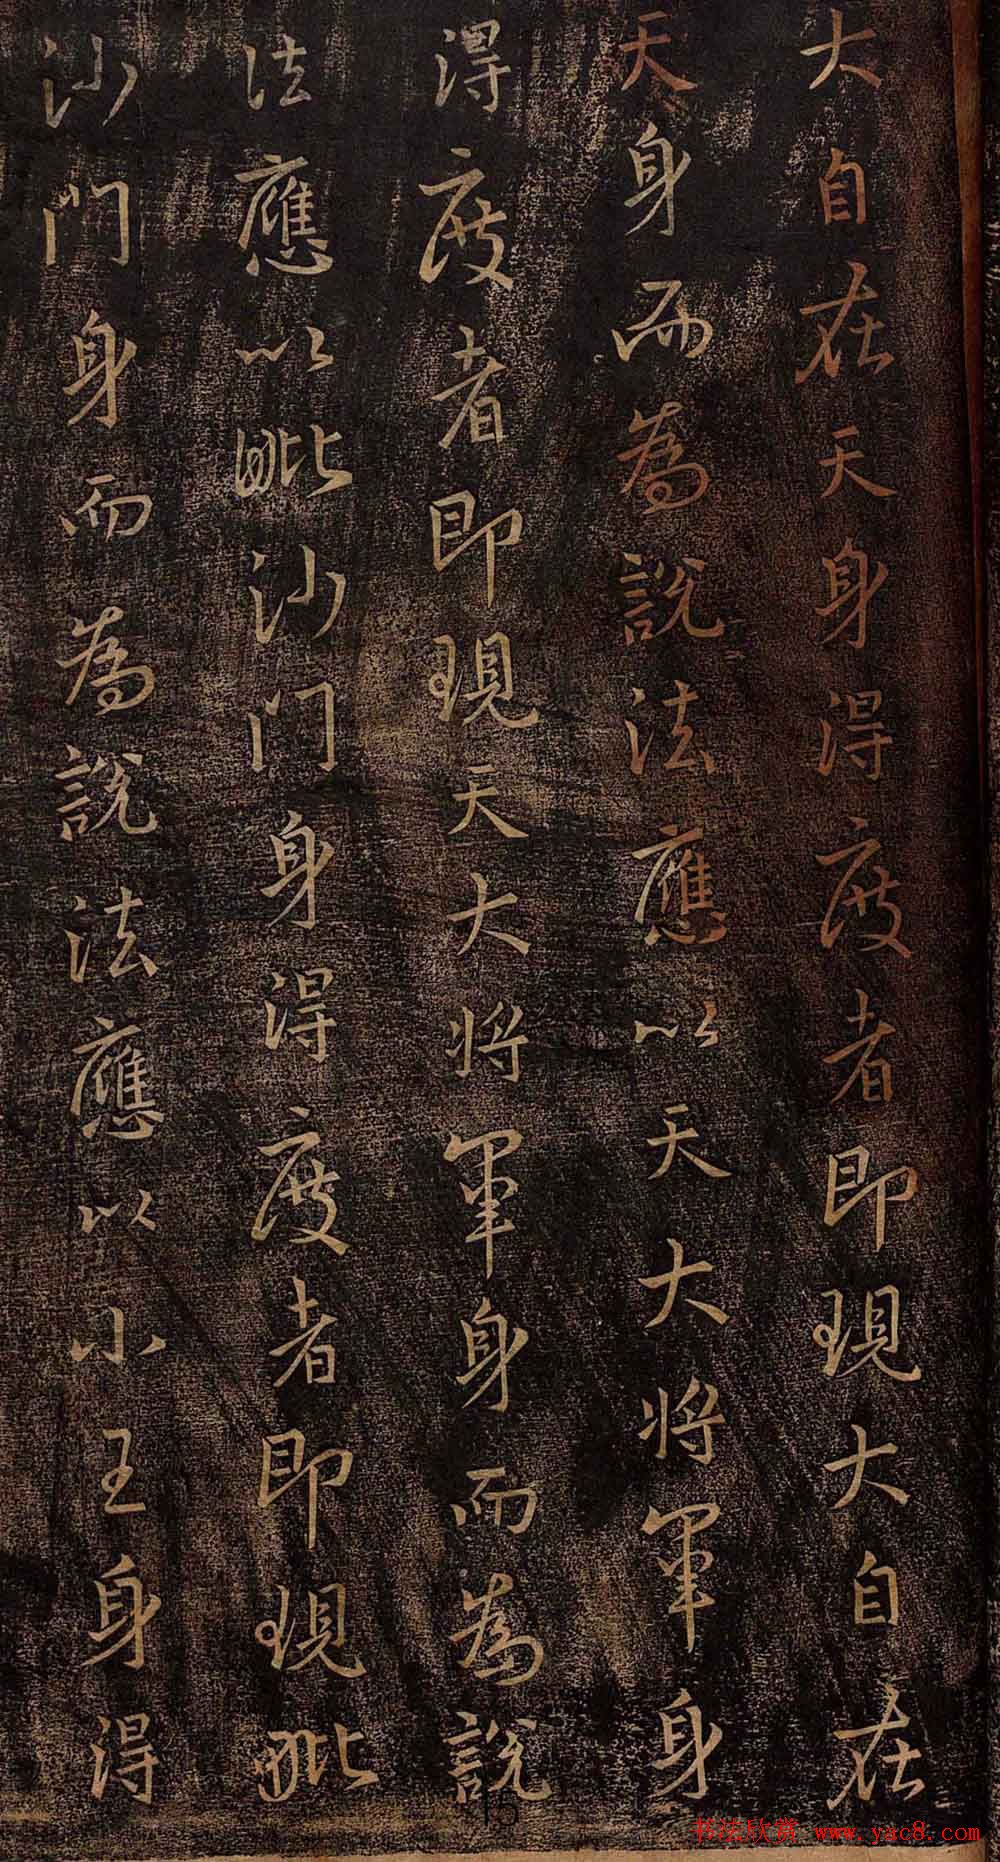 大自在天身得度者即現大自在
天身而為說法應以天大将軍身
得度者即現天大将軍身而為說
法應以毗沙門身得度者即現毗
沙門身而為說法應以小王身得
15
书法欣赏 www.yac8.com